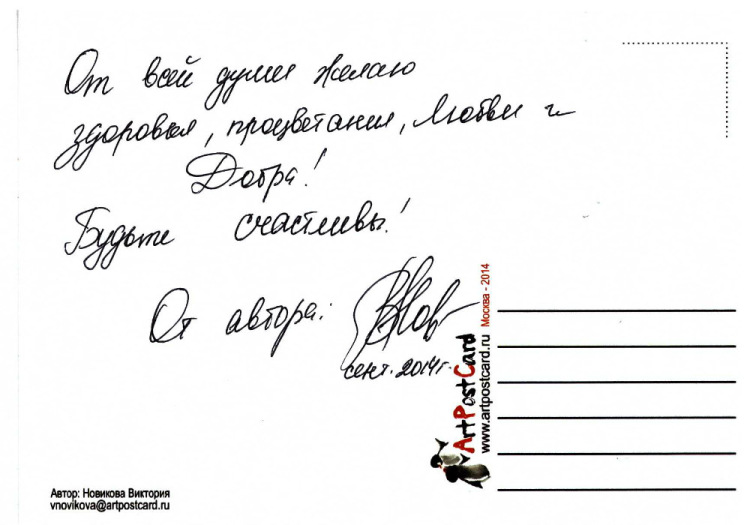 От всей души желаю
здоровья, процветания, Любви и
Добра!
Будьте счастливы!
От автора:
сент. 2014г.
ArtPostCard
www.artpostcard.ru Москва - 2014
Автор: Новикова Виктория
vnovikova@artpostcard.ru